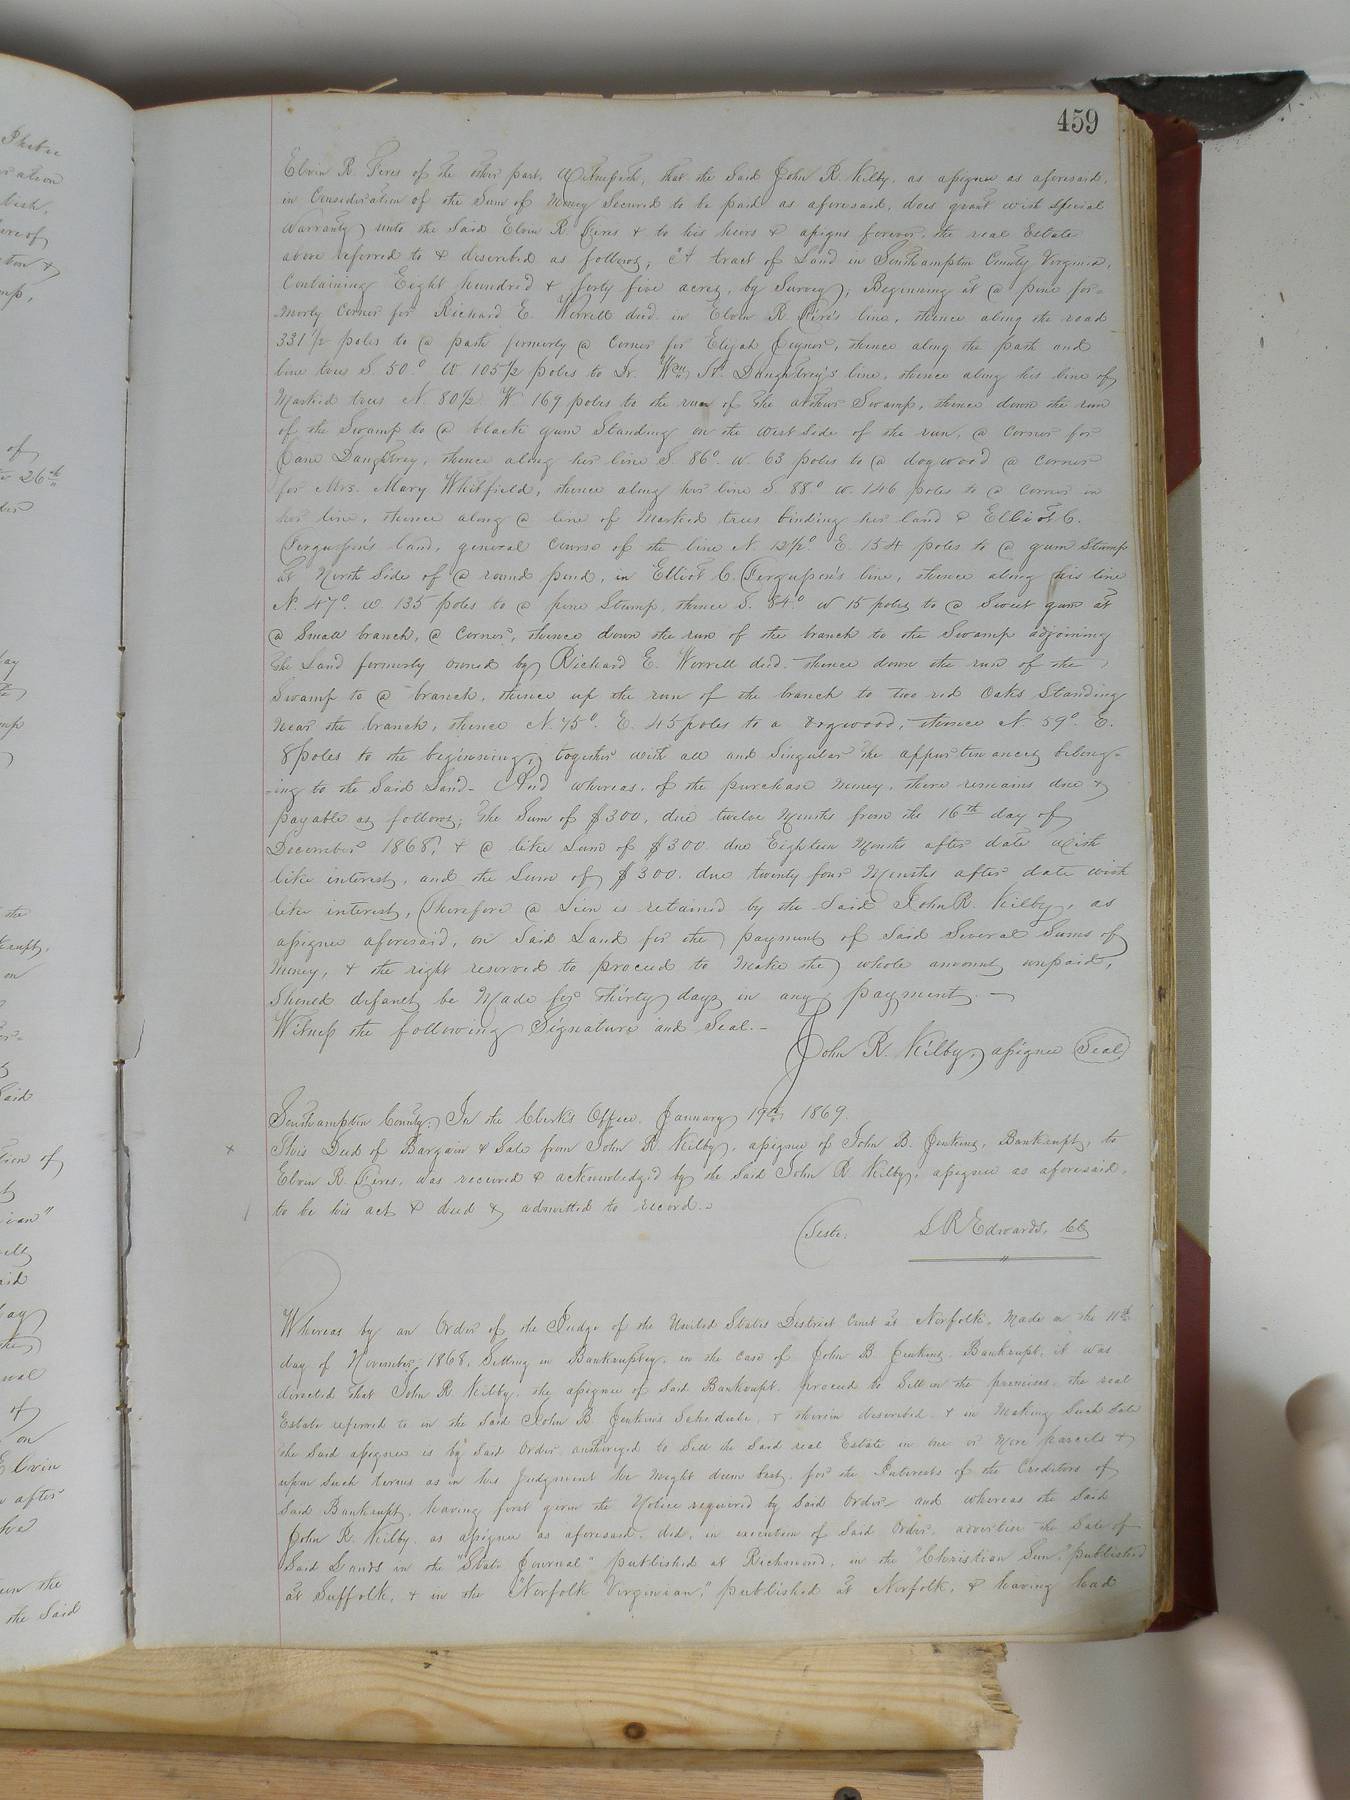 459
Elvin R. Feres of the other part, Witnesseth, that the said John R. Kilby, as assignee as aforesaid,
in Consideration of the Sum of Money Secured to be paid as aforesaid, does grant with Special
Warranty unto the said Elvin R. Feres & to his heirs & assigns forever, the real Estate
above referred to & described as follows; A tract of Land in Southampton County Virginia,
Containing Eight hundred & forty five acres, by Survey; Beginning at a pine for-
merly Corner for Richard E. Worrell decd. in Elvin R. line, thence along the road
331 1/2 poles to a path formerly a Corner for Elijah Joyner, thence along the path and
line trees S. 50.° W 105 1/2 poles to Dr. Wm. H. Daughtrey's line, thence along his line of
Marked trees N. 80 1/2 W 169 poles to the run of the Swamp, thence down the run
of the Swamp to a black gum Standing on the west side of the run, a Corner for
Daughtrey, thence along her line S. 86°. W. 63 poles to a dogwood a Corner
for Mrs. Mary Whitfield, thence along her line S. 88° W. 146 poles to a Corner in
her line, thence along a line of Marked trees binding her land & Elliot C.
Fergusson's land, general Course of the line N. 12 1/2° E. 154 poles to a gum Stump
at North Side of a round pond, in Elliot C. Fergusson's line, thence along his line
N. 47°. W. 135 poles to a pine Stump, thence S. 84.° W 15 poles to a Sweet gum at
a Small branch, a Corner, thence down the run of the branch to the Swamp adjoining
the Land formerly owned by Richard E. Worrell decd. thence down the run of the
Swamp to a branch, thence up the run of the branch to two red Oaks Standing
Near the branch, thence N. 75°. E. 45 poles to a dogwood, thence N. 59°. E.
8 poles to the beginning, together with all and Singular the appurtenances belong-
-ing to the Said Land- And whereas, of the purchase Money, there remains due &
payable as follows; The Sum of $300, due twelve Months from the 16th day of
December 1868, & a like Sum of $300 due Eighteen Months after date with
like interest, and the Sum of $300. due twenty four Months after date with
like interest, Therefore a Lien is retained by the Said John R. Kilby, as
assignee aforesaid, on Said Land for the payment of Said Several Sums of
Money, & the right reserved to proceed to Make the whole amount unpaid,
Should default be Made for thirty days in any payment. —
Witness the following Signature and Seal.-
John R. Kilby, assignee (Seal)
Southampton County; In the Clerk's Office, January 19th 1869.
x This Deed of Bargain & Sale from John R. Kilby, assignee of John B. Jenkins, Bankrupt, to
Elvin R. Feres, was received & acknowledged by the Said John R Kilby, assignee as aforesaid,
to be his act & deed & admitted to record.-
Teste. L R Edwards, CC
Whereas by an Order of the Judge of the United States District Court at Norfolk, Made on the 11th
day of November 1868, Sitting in Bankruptcy, in the case of John B. Jenkins, Bankrupt, it was
directed that John R Kilby, the assignee of Said Bankrupt, proceed to Sell on the premises, the real
Estate referred to in the Said John B Jenkins Schedule, & therein described & in Making Such Sale
the Said assignee is by Said Order authorized to Sell the Said real Estate in one or More parcels &
upon Such terms as in his Judgment he might deem best, for the Interests of the Creditors of
Said Bankrupt, having first given the Notice required by Said Order and whereas the Said
John R. Kilby, as assignee as aforesaid, did, in execution of Said Order, advertise the Sale of
Said Lands in the "State Journal" published at Richmond, in the "Christian Sun," published
at Suffolk, & in the "Norfolk Virginian," published at Norfolk, & having had